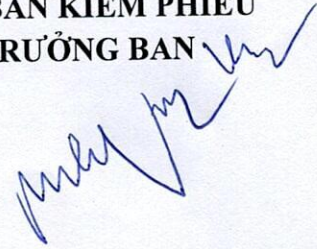 BAN KIỂM PHIẾU
TRƯỞNG BAN